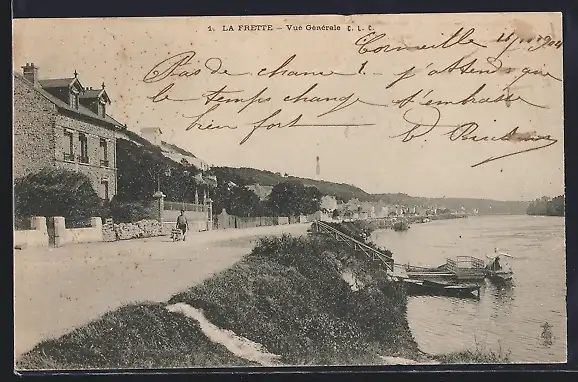 1. LA FRETTE — Vue Générale C. L. C.
Cormeille
Pas de chance !.. j'attends que
le temps change et t'embrasse
bien fort